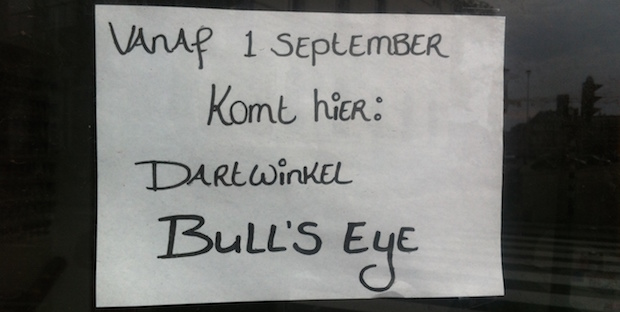 Vanaf 1 September
Komt hier:
Dartwinkel
Bull's Eye